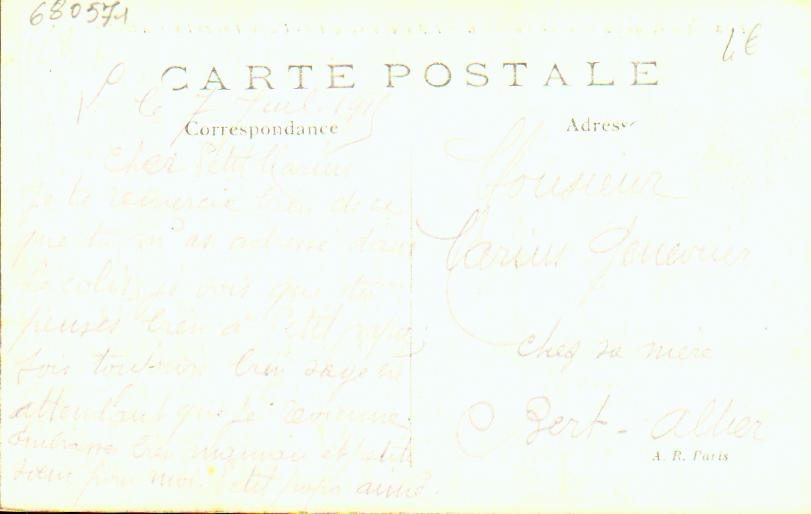 680571
4€
CARTE POSTALE
le 7 Juil. 1915
Correspondance
Adresse
Cher Petit Marius
Je te remercie bien de ce
que tu m'as adressé dans
le colis, je vois que tu
penses bien à Petit papa,
sois toujours bien sage en
attendant que je revienne
Embrasse bien maman et petite
sœur pour moi Petit papa aimé.
Monsieur
Marius Genevrier
chez sa mère
Bert - Allier
A. R. Paris